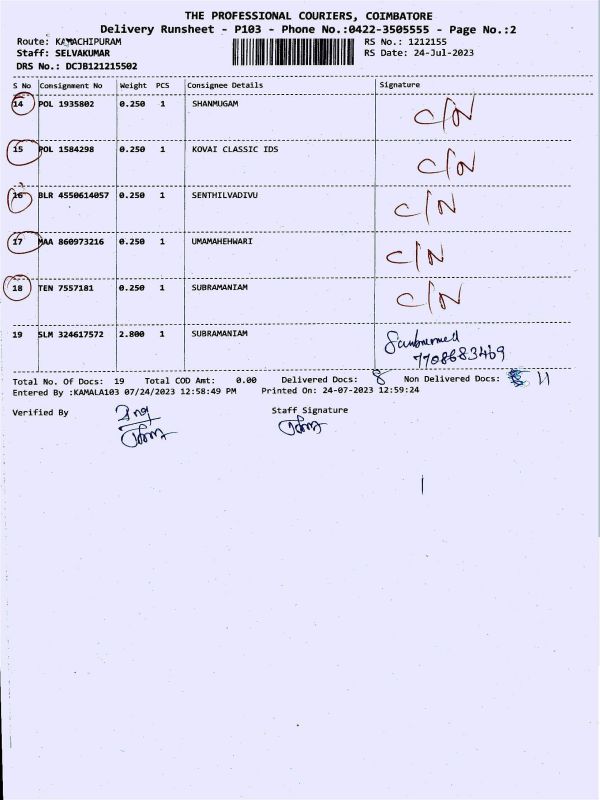 THE PROFESSIONAL COURIERS, COIMBATORE
Delivery Runsheet - P103 - Phone No.:0422-3505555 - Page No.:2
Route: KAMACHIPURAM RS No.: 1212155
Staff: SELVAKUMAR RS Date: 24-Jul-2023
DRS No.: DCJB121215502
S No Consignment No Weight PCS Consignee Details Signature
14 POL 1935802 0.250 1 SHANMUGAM C/N
15 POL 1584298 0.250 1 KOVAI CLASSIC IDS C/N
16 BLR 4550614057 0.250 1 SENTHILVADIVU C/N
17 MAA 860973216 0.250 1 UMAMAHEHWARI C/N
18 TEN 7557181 0.250 1 SUBRAMANIAM C/N
19 SLM 324617572 2.800 1 SUBRAMANIAM
7708683469
Total No. Of Docs: 19 Total COD Amt: 0.00 Delivered Docs: 8 Non Delivered Docs: 11
Entered By :KAMALA103 07/24/2023 12:58:49 PM Printed On: 24-07-2023 12:59:24
Verified By Staff Signature